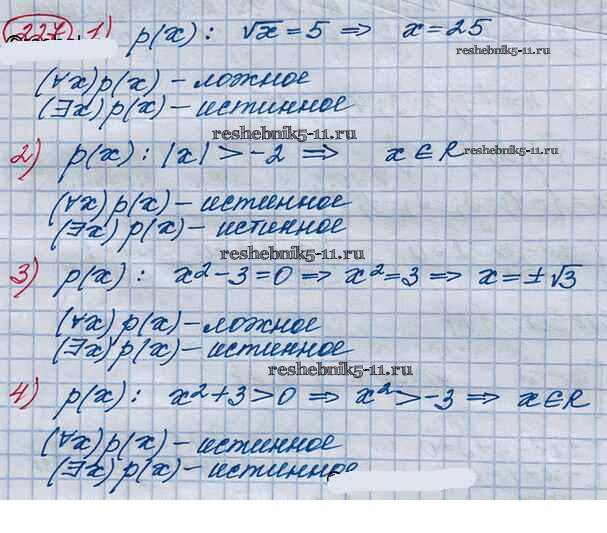 227 1) p(x): √x = 5 ⇒ x = 25
reshebnik5-11.ru
(∀x)p(x) – ложное
(∃x)p(x) – истинное
reshebnik5-11.ru
2) p(x): |x| > -2 ⇒ x ∈ R
reshebnik5-11.ru
(∀x)p(x) – истинное
(∃x)p(x) – истинное
reshebnik5-11.ru
3) p(x): x² - 3 = 0 ⇒ x² = 3 ⇒ x = ±√3
(∀x)p(x) – ложное
(∃x)p(x) – истинное
reshebnik5-11.ru
4) p(x): x² + 3 > 0 ⇒ x² > -3 ⇒ x ∈ R
(∀x)p(x) – истинное
(∃x)p(x) – истинное